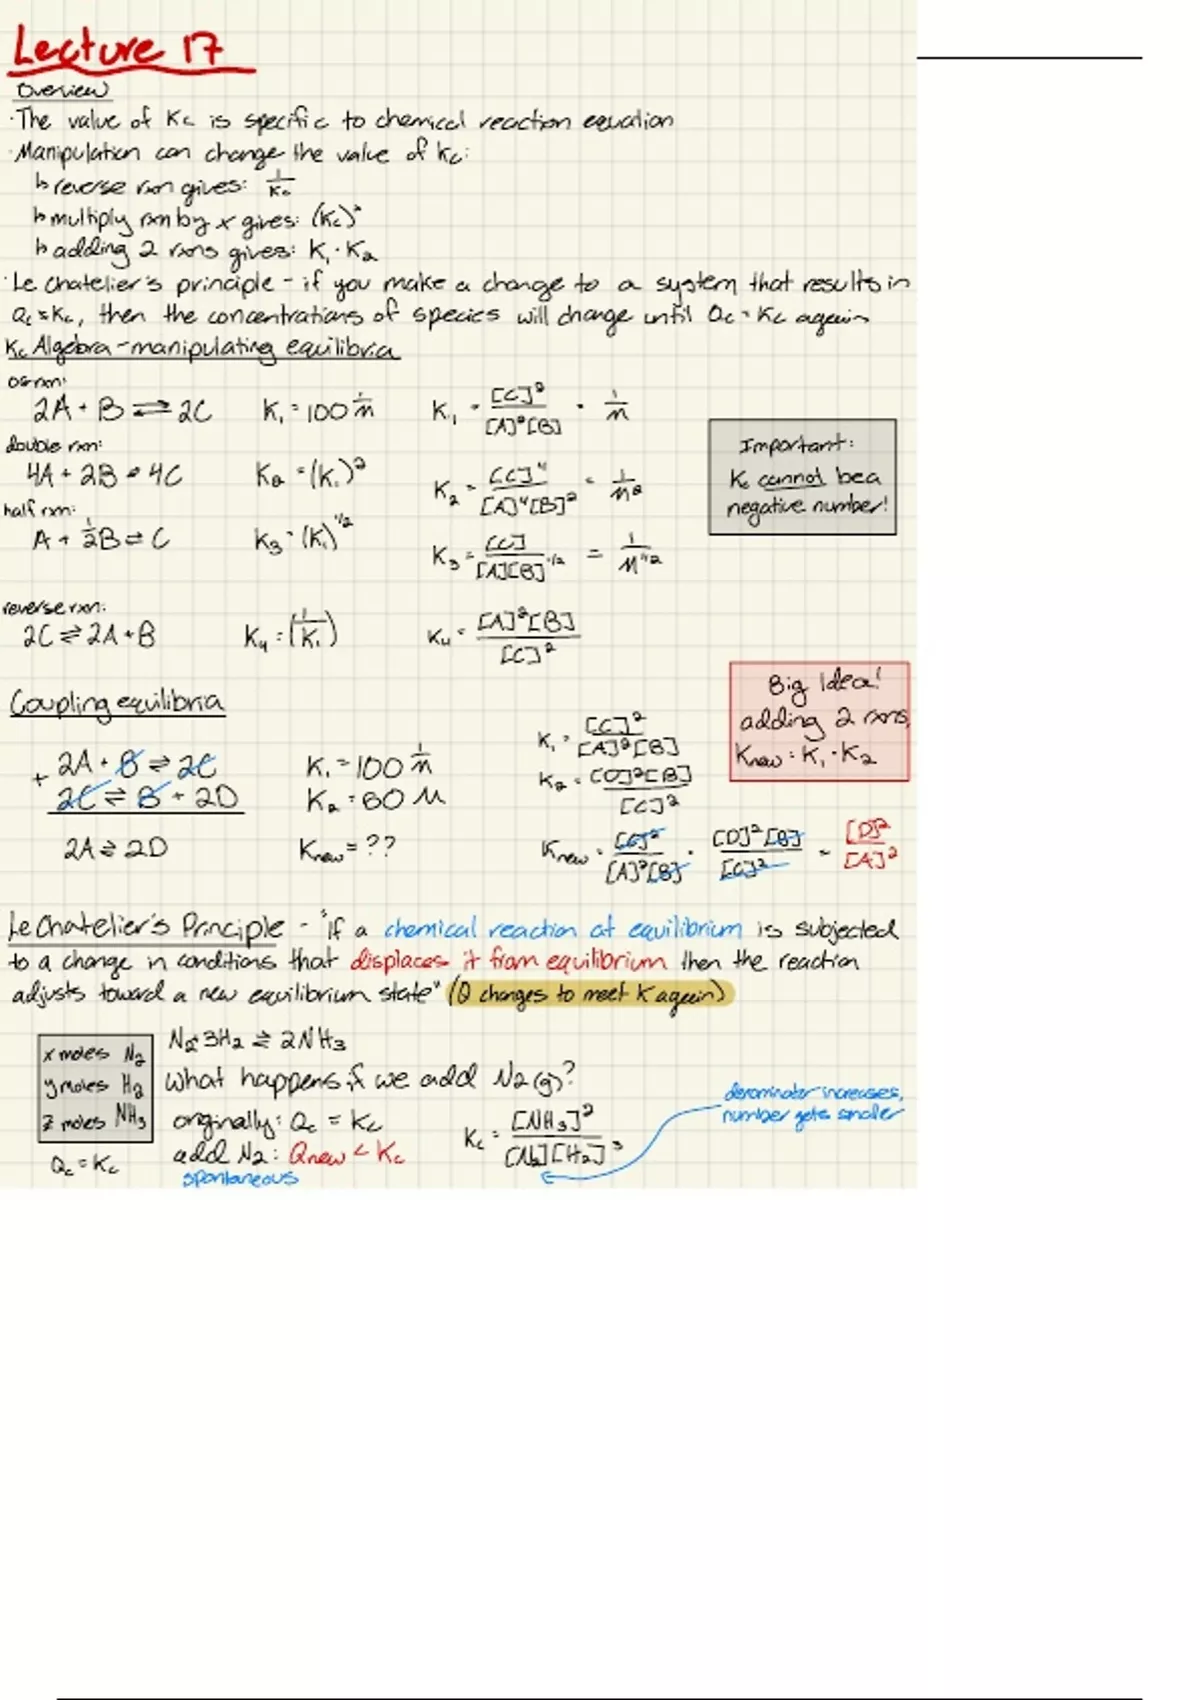 Lecture 17
Overview
·The value of Kc is specific to chemical reaction equation
·Manipulation can change the value of Kc:
↳ reverse rxn gives: 1/Kc
↳ multiply rxn by x gives: (Kc)ˣ
↳ adding 2 rxns gives: K₁·K₂
·Le Chatelier's principle - if you make a change to a system that results in
Qc≠Kc, then the concentrations of species will change until Qc=Kc again
Kc Algebra - manipulating equilibria
OG rxn:
2A + B ⇌ 2C K₁=100 1/M K₁ = [C]²/[A]²[B] = 1/M
double rxn:
4A + 2B ⇌ 4C K₂ = (K₁)² K₂ = [C]⁴/[A]⁴[B]² = 1/M²
half rxn:
A + ½B ⇌ C K₃ = (K₁)^1/2 K₃ = [C]/[A][B]^1/2 = 1/M^1/2
Important:
Kc cannot be a
negative number!
reverse rxn:
2C ⇌ 2A + B K₄ = (1/K₁) K₄ = [A]²[B]/[C]²
Big Idea!
adding 2 rxns,
Knew = K₁·K₂
Coupling equilibria
2A + B ⇌ 2C K₁ = 100 1/M K₁ = [C]²/[A]²[B]
+ 2C ⇌ B + 2D K₂ = 60 M K₂ = [D]²[B]/[C]²
2A ⇌ 2D Knew = ?? Knew = [C]²/[A]²[B] · [D]²[B]/[C]² = [D]²/[A]²
Le Chatelier's Principle - "if a chemical reaction at equilibrium is subjected
to a change in conditions that displaces it from equilibrium then the reaction
adjusts toward a new equilibrium state" (Q changes to meet K again)
x moles N₂
y moles H₂
z moles NH₃
Qc = Kc
N₂+3H₂ ⇌ 2NH₃
What happens if we add N₂(g)?
originally: Qc = Kc
add N₂: Qnew < Kc
spontaneous
Kc = [NH₃]²/[N₂][H₂]³
denominator increases,
number gets smaller